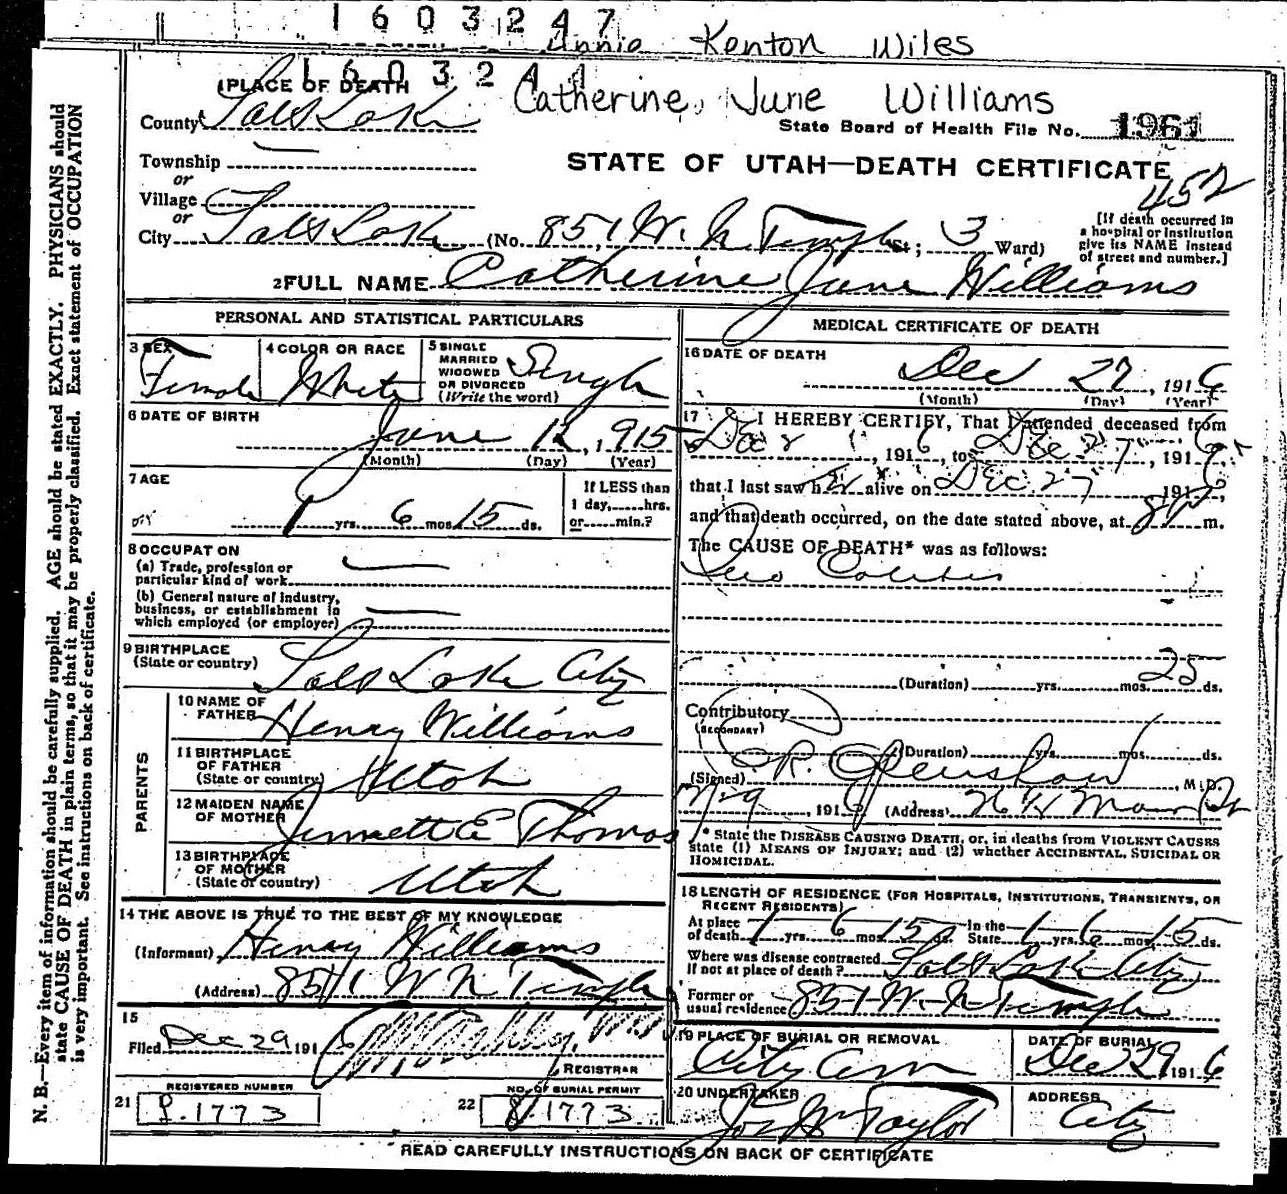 1603247
Annie Kenton Wiles
1603244
1 PLACE OF DEATH
Catherine, June Williams
County Salt Lake
State Board of Health File No. 1961
Township
or
STATE OF UTAH—DEATH CERTIFICATE
452
Village
or
City Salt Lake (No. 851 W. N Temple St; 3 Ward)
[If death occurred in a hospital or institution give its NAME instead of street and number.]
2 FULL NAME Catherine June Williams
PERSONAL AND STATISTICAL PARTICULARS
3 SEX Female
4 COLOR OR RACE White
5 SINGLE MARRIED WIDOWED OR DIVORCED (Write the word) Single
6 DATE OF BIRTH June 12, 1915
(Month) (Day) (Year)
7 AGE 1 yrs. 6 mos. 15 ds.
If LESS than 1 day,......hrs. or......min.?
8 OCCUPATION
(a) Trade, profession or particular kind of work
(b) General nature of industry, business, or establishment in which employed (or employer)
9 BIRTHPLACE (State or country) Salt Lake City
PARENTS
10 NAME OF FATHER Henry Williams
11 BIRTHPLACE OF FATHER (State or country) Utah
12 MAIDEN NAME OF MOTHER Jennett E Thomas
13 BIRTHPLACE OF MOTHER (State or country) Utah
14 THE ABOVE IS TRUE TO THE BEST OF MY KNOWLEDGE
(Informant) Henry Williams
(Address) 851 W N Temple
15
Filed Dec 29 1916
REGISTRAR
REGISTERED NUMBER
21 1773
NO. OF BURIAL PERMIT
22 1773
MEDICAL CERTIFICATE OF DEATH
16 DATE OF DEATH Dec 27, 1916
(Month) (Day) (Year)
17 I HEREBY CERTIFY, That I attended deceased from
Dec 1916, to Dec 27, 1916,
that I last saw her alive on Dec. 27 191
and that death occurred, on the date stated above, at 8 P m.
The CAUSE OF DEATH* was as follows:
Ileo Colitis
(Duration) yrs. mos. 25 ds.
Contributory
(SECONDARY)
(Duration) yrs. mos. ds.
(Signed) M.D.
191 (Address) Main St
* State the DISEASE CAUSING DEATH, or, in deaths from VIOLENT CAUSES
state (1) MEANS OF INJURY; and (2) whether ACCIDENTAL, SUICIDAL OR
HOMICIDAL.
18 LENGTH OF RESIDENCE (FOR HOSPITALS, INSTITUTIONS, TRANSIENTS, OR RECENT RESIDENTS)
At place of death 1 yrs. 6 mos. 15 ds. In the State 1 yrs. 6 mos. 15 ds.
Where was disease contracted if not at place of death? Salt Lake City
Former or usual residence 851 W N Temple
19 PLACE OF BURIAL OR REMOVAL City Cem
DATE OF BURIAL Dec 29 1916
20 UNDERTAKER Jos Wm Taylor
ADDRESS City
READ CAREFULLY INSTRUCTIONS ON BACK OF CERTIFICATE
N. B.—Every item of information should be carefully supplied. AGE should be stated EXACTLY. PHYSICIANS should
state CAUSE OF DEATH in plain terms, so that it may be properly classified. Exact statement of OCCUPATION
is very important. See instructions on back of certificate.